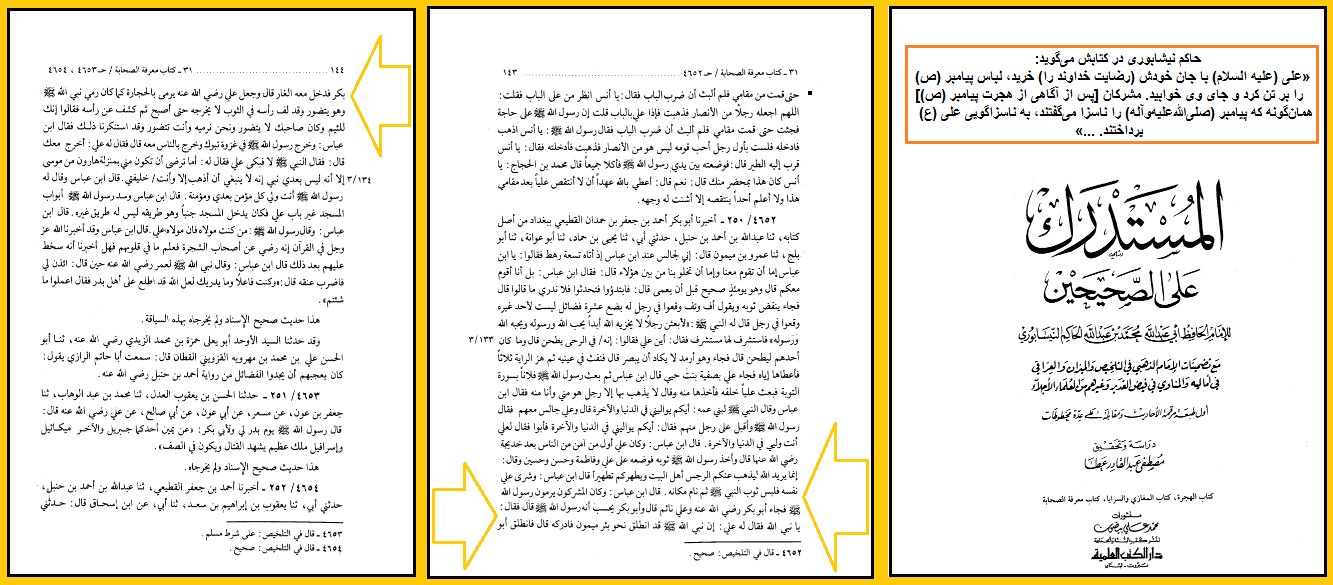 حاکم نیشابوری در کتابش می‌گوید:
«علی (علیه السلام) با جان خودش (رضایت خداوند را) خرید، لباس پیامبر (ص)
را بر تن کرد و جای وی خوابید. مشرکان [پس از آگاهی از هجرت پیامبر (ص)]
همان‌گونه که پیامبر (صلی‌الله‌علیه‌وآله) را ناسزا می‌گفتند، به ناسزاگویی علی (ع)
پرداختند. ...»
المستدرك
على الصحيحين
للإمام الحافظ أبي عبد الله محمد بن عبد الله الحاكم النيسابوري
مع تضمينات الإمام الذهبي في التلخيص والميزان والعراقي
في أماليه والمناوي في فيض القدير وغيرهم من العلماء الأجلاء
أول طبعة مرقمة الأحاديث ومقابلة على عدة مخطوطات
دراسة وتحقيق
مصطفى عبد القادر عطا
كتاب الهجرة، كتاب المغازي والسرايا، كتاب معرفة الصحابة
منشورات
محمد علي بيضون
دار الكتب العلمية
بيروت - لبنان
٣١ ـ كتاب معرفة الصحابة / حـ ٤٦٥٢ ........ ١٤٣
حتى قمت من مقامي فلم ألبث أن ضرب الباب فقال: يا أنس انظر من على الباب فقلت:
اللهم اجعله رجلاً من الأنصار فذهبت فإذا علي بالباب قلت إن رسول الله ﷺ على حاجة
فجئت حتى قمت مقامي فلم ألبث أن ضرب الباب فقال رسول الله ﷺ: يا أنس اذهب
فادخله فلست بأول رجل أحب قومه ليس هو من الأنصار فذهبت فأدخلته فقال: يا أنس
قرب إليه الطير قال: فوضعته بين يدي رسول الله ﷺ فأكلا جميعاً قال محمد بن الحجاج: يا
أنس كان هذا بمحضر منك قال: نعم قال: أعطي بالله عهداً أن لا أنتقص علياً بعد مقامي
هذا ولا أعلم أحداً ينتقصه إلا أشنت له وجهه.
٤٦٥٢/ ٢٥٠ ـ أخبرنا أبو بكر أحمد بن جعفر بن حمدان القطيعي ببغداد من أصل
كتابه، ثنا عبدالله بن أحمد بن حنبل، حدثني أبي، ثنا يحيى بن حماد، ثنا أبو عوانة، ثنا أبو
بلج، ثنا عمرو بن ميمون قال: إني لجالس عند ابن عباس إذ أتاه تسعة رهط فقالوا: يا ابن
عباس إما أن تقوم معنا وإما أن تخلو بنا من بين هؤلاء قال: فقال ابن عباس: بل أنا أقوم
معكم قال وهو يومئذ صحيح قبل أن يعمى قال: فابتدؤوا فتحدثوا فلا ندري ما قالوا قال
فجاء ينفض ثوبه ويقول أف وتف وقعوا في رجل له بضع عشرة فضائل ليست لأحد غيره
وقعوا في رجل قال له النبي ﷺ: «لأبعثن رجلاً لا يخزيه الله أبداً يحب الله ورسوله ويحبه الله
ورسوله» فاستشرف لها مستشرف فقال: أين علي فقالوا: إنه/ في الرحى يطحن قال وما كان ٣/١٣٣
أحدهم ليطحن قال فجاء وهو أرمد لا يكاد أن يبصر قال فنفث في عينيه ثم هز الراية ثلاثاً
فأعطاها إياه فجاء علي بصفية بنت حيي قال ابن عباس ثم بعث رسول الله ﷺ فلاناً بسورة
التوبة فبعث علياً خلفه فأخذها منه وقال لا يذهب بها إلا رجل هو مني وأنا منه فقال ابن
عباس وقال النبي ﷺ لبني عمه: أيكم يواليني في الدنيا والآخرة قال وعلي جالس معهم فقال
رسول الله ﷺ وأقبل على رجل منهم فقال: أيكم يواليني في الدنيا والآخرة فأبوا فقال لعلي
أنت وليي في الدنيا والآخرة. قال ابن عباس: وكان علي أول من آمن من الناس بعد خديجة
رضي الله عنها قال وأخذ رسول الله ﷺ ثوبه فوضعه على علي وفاطمة وحسن وحسين وقال:
إنما يريد الله ليذهب عنكم الرجس أهل البيت ويطهركم تطهيراً قال ابن عباس: وشرى علي
نفسه فلبس ثوب النبي ﷺ ثم نام مكانه. قال ابن عباس: وكان المشركون يرمون رسول الله
ﷺ فجاء أبو بكر رضي الله عنه وعلي نائم قال وأبو بكر يحسب أنه رسول الله ﷺ قال فقال:
يا نبي الله فقال له علي: إن نبي الله ﷺ قد انطلق نحو بئر ميمون فادركه قال فانطلق أبو
٤٦٥٢ ـ قال في التلخيص: صحيح.
١٤٤ ........ ٣١ ـ كتاب معرفة الصحابة / حـ ٤٦٥٣ ، ٤٦٥٤
بكر فدخل معه الغار قال وجعل علي رضي الله عنه يرمى بالحجارة كما كان رمي نبي الله ﷺ
وهو يتضور وقد لف رأسه في الثوب لا يخرجه حتى أصبح ثم كشف عن رأسه فقالوا إنك
للئيم وكان صاحبك لا يتضور ونحن نرميه وأنت تتضور وقد استنكرنا ذلك فقال ابن
عباس: وخرج رسول الله ﷺ في غزوة تبوك وخرج بالناس معه قال فقال له علي: أخرج معك
قال: فقال النبي ﷺ لا فبكى علي فقال له: أما ترضى أن تكون مني بمنزلة هارون من موسى
٣/١٣٤ إلا أنه ليس بعدي نبي إنه لا ينبغي أن أذهب إلا وأنت/ خليفتي. قال ابن عباس وقال له
رسول الله ﷺ أنت ولي كل مؤمن بعدي ومؤمنة. قال ابن عباس وسد رسول الله ﷺ أبواب
المسجد غير باب علي فكان يدخل المسجد جنباً وهو طريقه ليس له طريق غيره. قال ابن
عباس: وقال رسول الله ﷺ: من كنت مولاه فان مولاه علي. قال ابن عباس وقد أخبرنا الله عز
وجل في القرآن إنه رضي عن أصحاب الشجرة فعلم ما في قلوبهم فهل أخبرنا أنه سخط
عليهم بعد ذلك قال ابن عباس: وقال نبي الله ﷺ لعمر رضي الله عنه حين قال: ائذن لي
فاضرب عنقه قال: «وكنت فاعلاً وما يدريك لعل الله قد اطلع على أهل بدر فقال اعملوا ما
شئتم».
هذا حديث صحيح الإسناد ولم يخرجاه بهذه السياقة.
وقد حدثنا السيد الأوحد أبو يعلى حمزة بن محمد الزيدي رضي الله عنه، ثنا أبو
الحسن علي بن محمد بن مهرويه القزويني القطان قال: سمعت أبا حاتم الرازي يقول:
كان يعجبهم أن يجدوا الفضائل من رواية أحمد بن حنبل رضي الله عنه.
٤٦٥٣/ ٢٥١ ـ حدثنا الحسن بن يعقوب العدل، ثنا محمد بن عبد الوهاب، ثنا
جعفر بن عون، عن مسعر، عن أبي عون، عن أبي صالح، عن علي رضي الله عنه قال:
قال رسول الله ﷺ يوم بدر لي ولأبي بكر: «عن يمين أحدكما جبريل والآخر ميكائيل
وإسرافيل ملك عظيم يشهد القتال ويكون في الصف».
هذا حديث صحيح الإسناد ولم يخرجاه.
٤٦٥٤/ ٢٥٢ ـ أخبرنا أحمد بن جعفر القطيعي، ثنا عبدالله بن أحمد بن حنبل،
حدثني أبي، ثنا يعقوب بن إبراهيم بن سعد، ثنا أبي، عن ابن إسحاق قال: حدثني
٤٦٥٣ ـ قال في التلخيص: على شرط مسلم.
٤٦٥٤ ـ قال في التلخيص: صحيح.